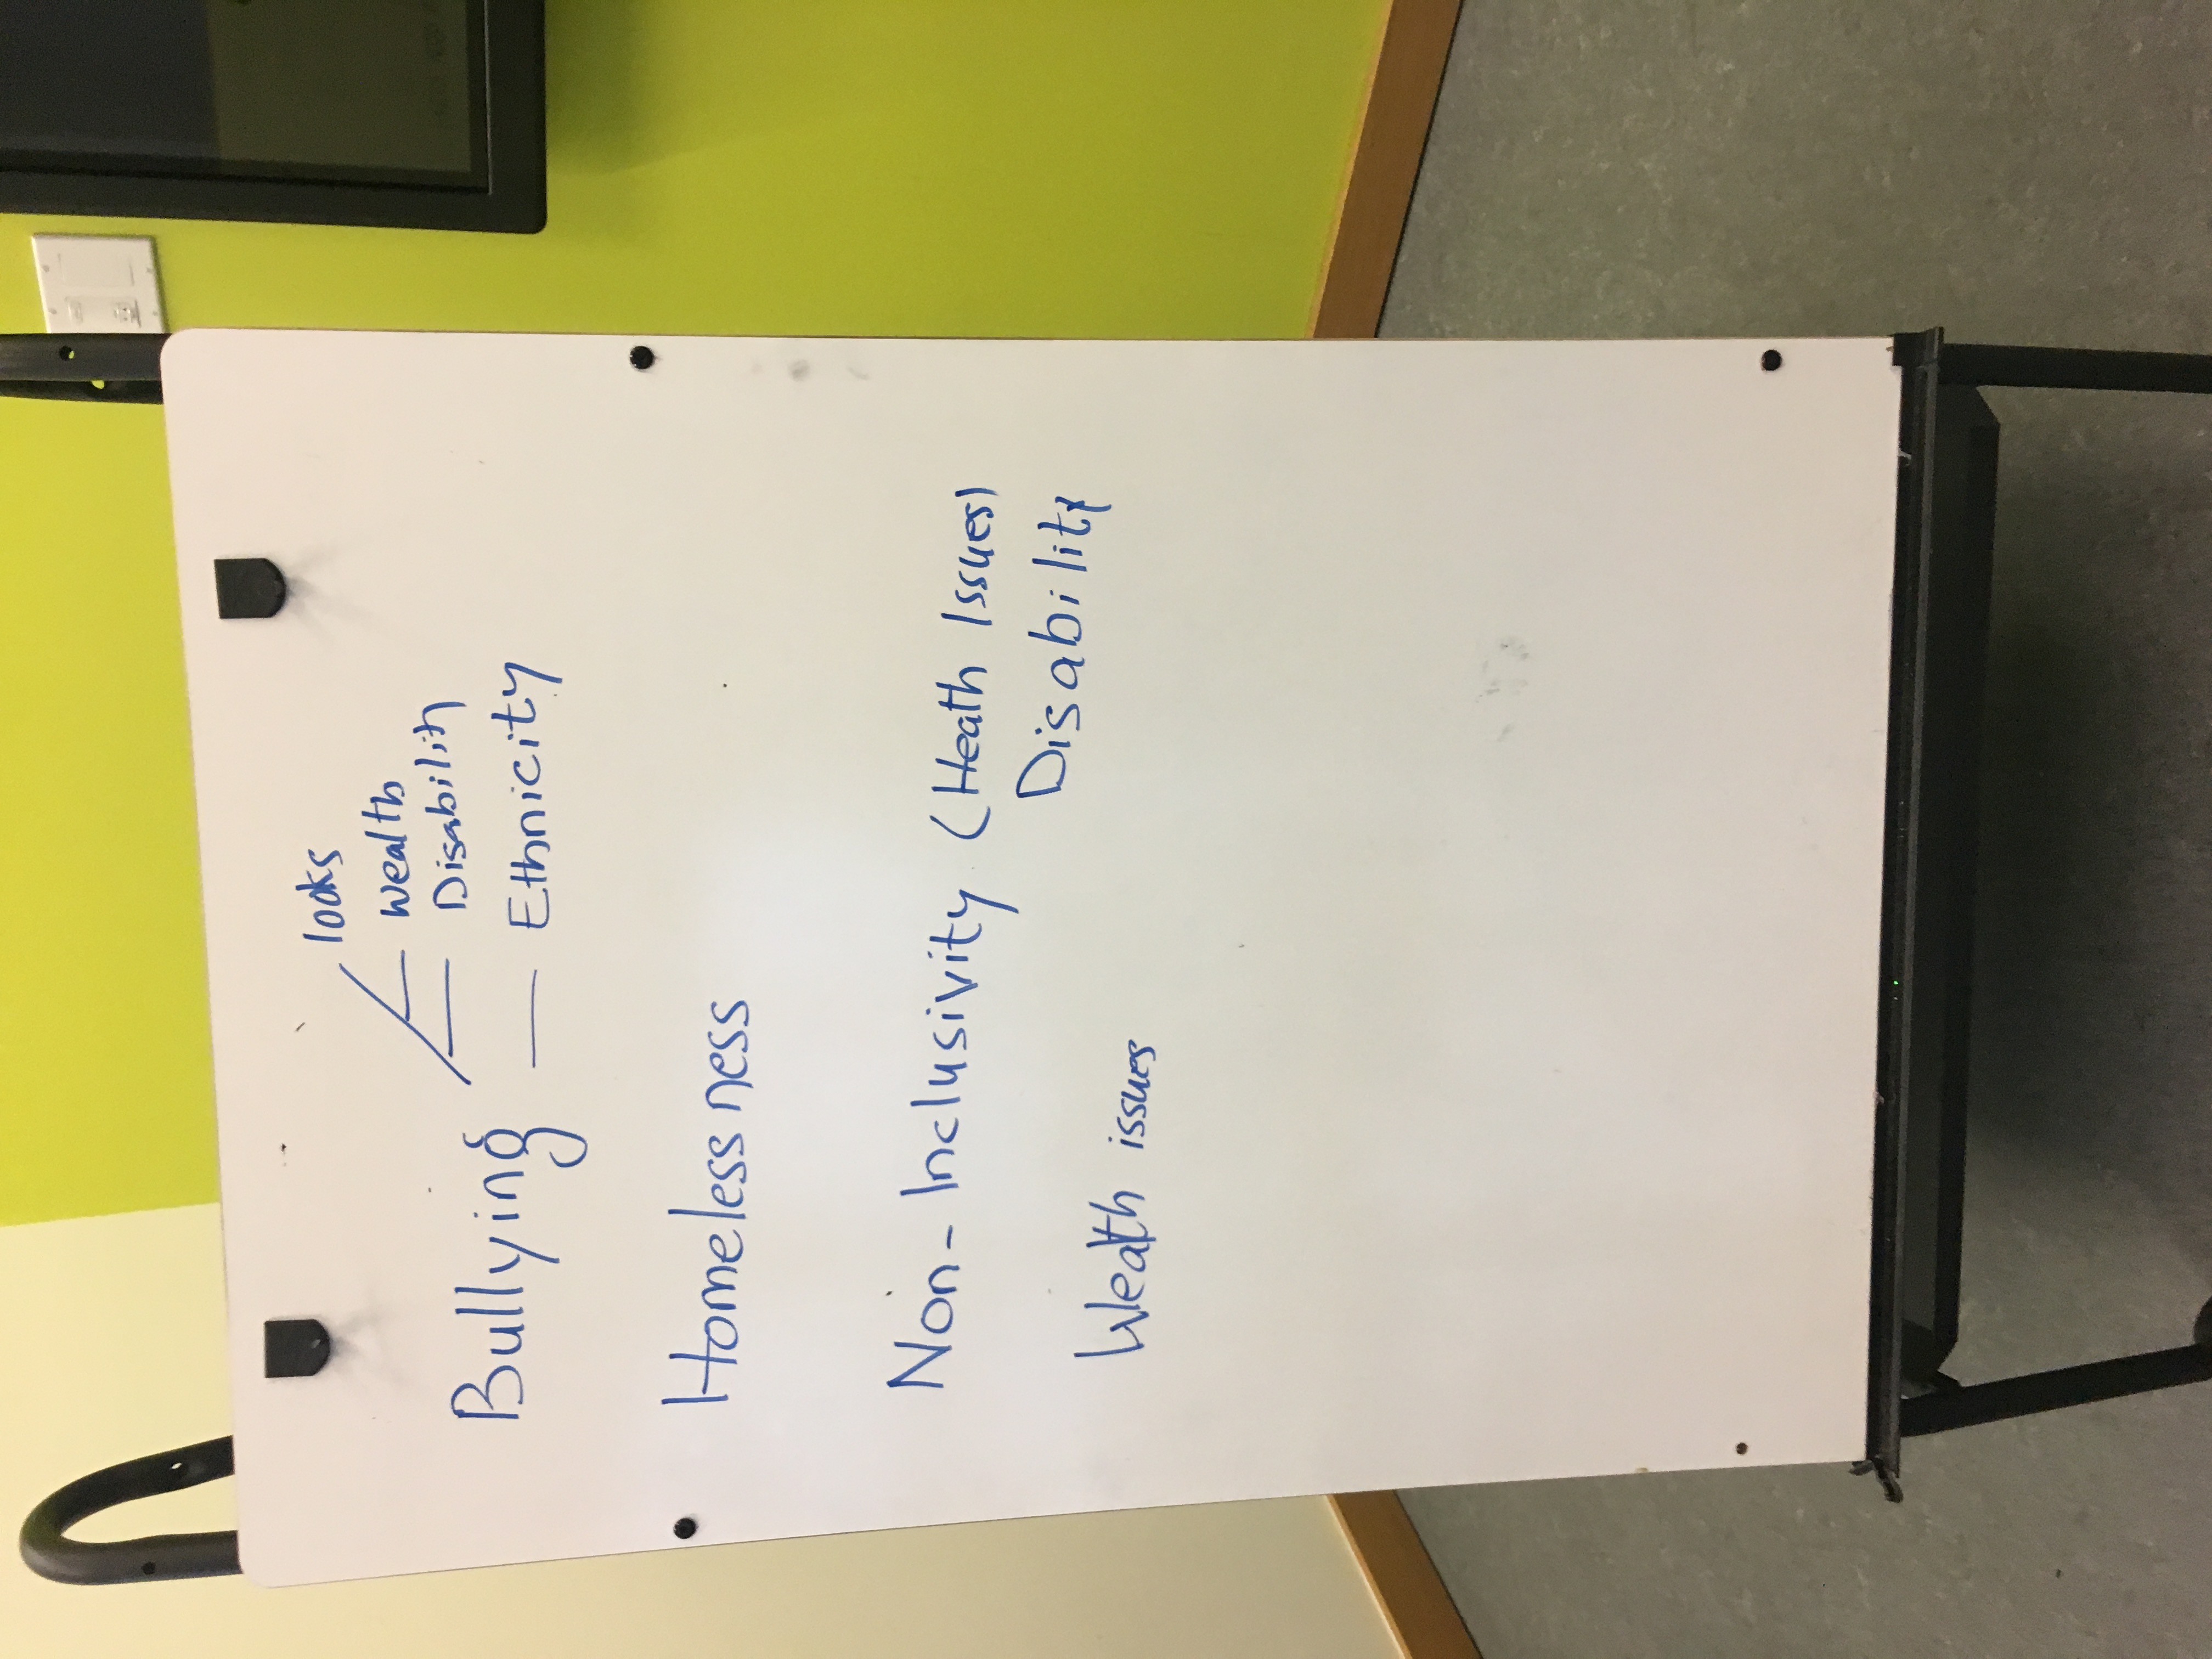 looks
Wealth
Disability
Bullying
Ethnicity
Homelessness
Non-Inclusivity (Heath Issues)
Disability
Wealth issues